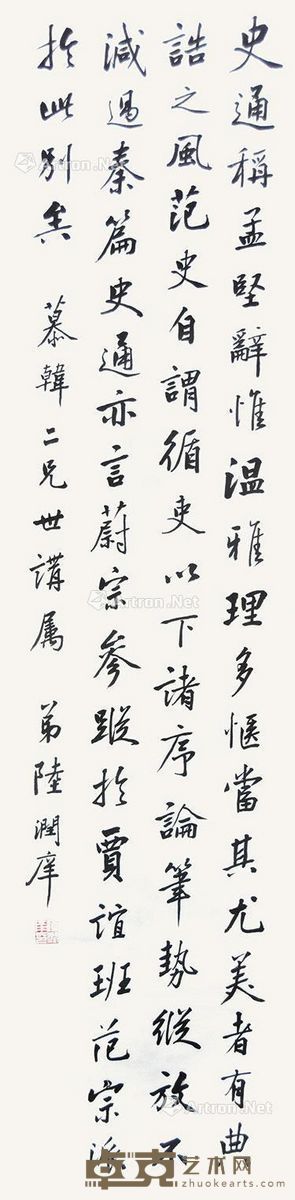 史通稱孟堅辭惟温雅理多愜當其尤美者有典
誥之風范史自謂循吏以下諸序論筆勢縱放不
減過秦篇史通亦言蔚宗參蹤於賈誼班范宗派
於此別矣
慕韓二兄世講属
弟陸潤庠
Artron.Net
Artron.Net
Artron.Net
卓克艺术网
zhuokearts.com